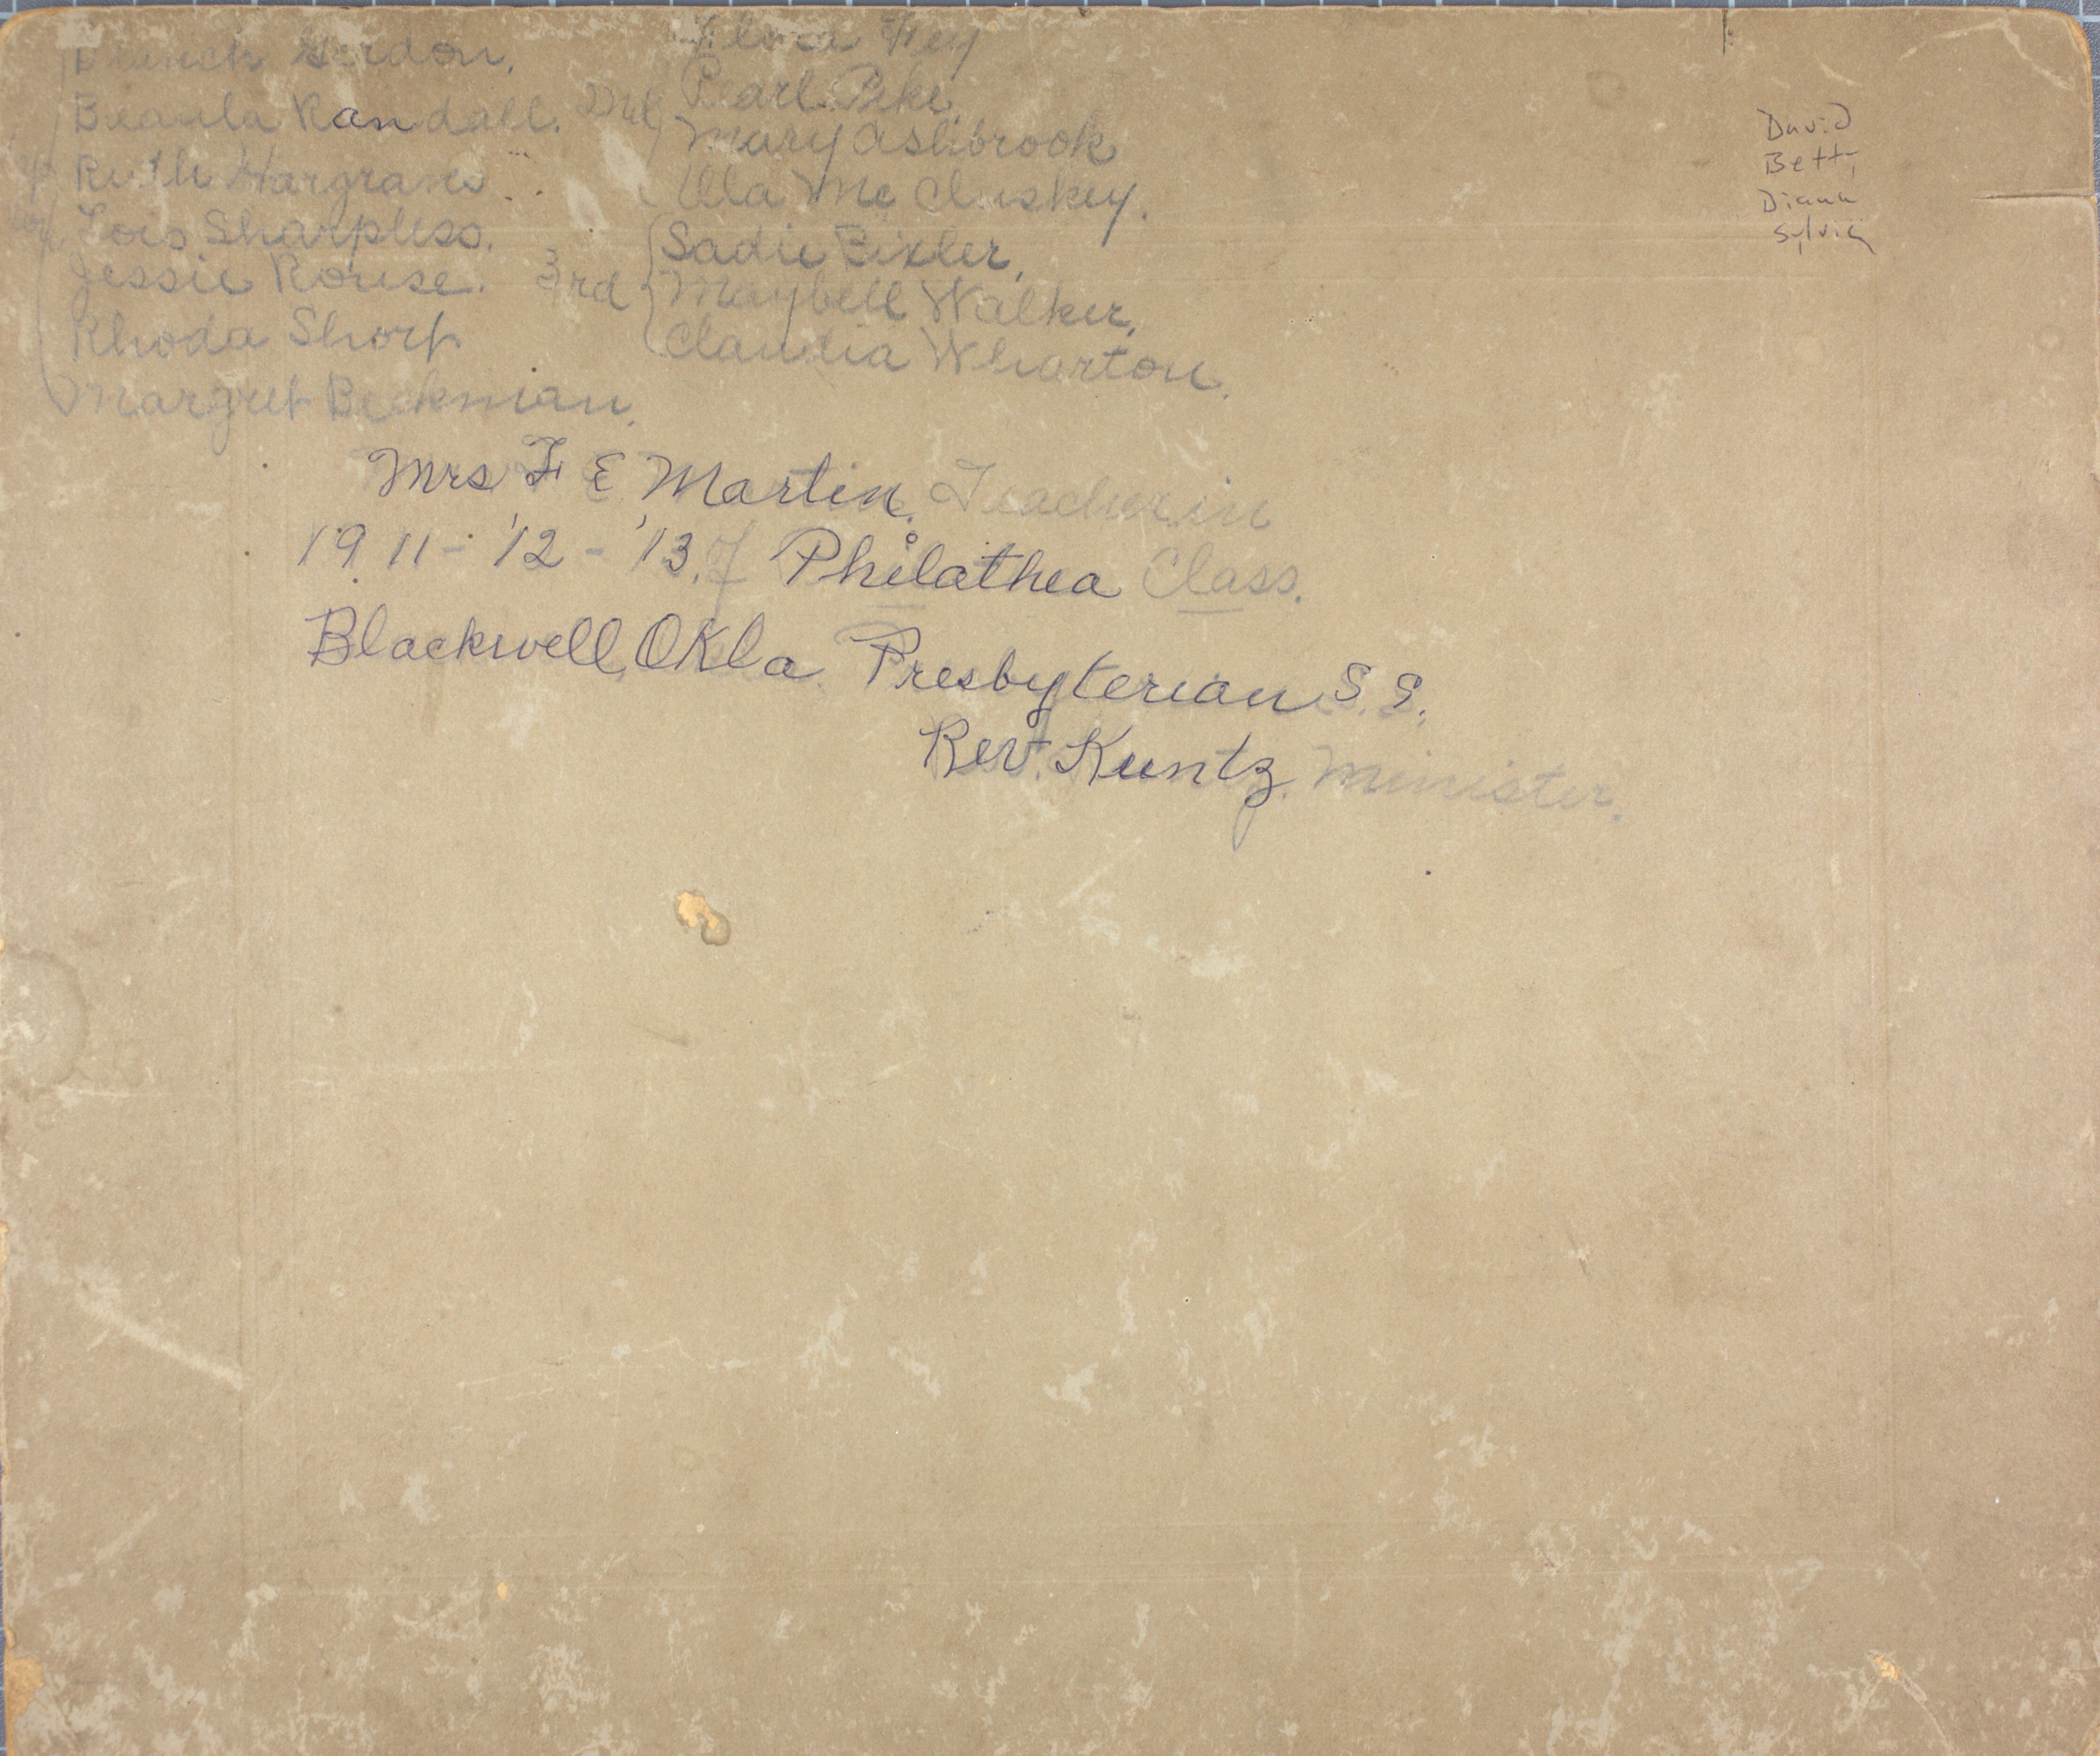 Gordon.
Beaula Randall.
Ruth Hargraves.
Lois Sharpless.
Jessie Rouse.
Rhoda Shorp
Margret Beckman.
Pearl Peke.
2nd
Mary Ashbrook
Mc Cluskey.
Sadie Bixler,
3rd
Maybell Walker,
Claudia Wharton.
Mrs F E Martin. Teacher in
1911-'12-'13. of Philathea Class.
Blackwell, Okla. Presbyterian S. S.
Rev. Kuntz. Minister.
David
Betty
Diana
Sylvia